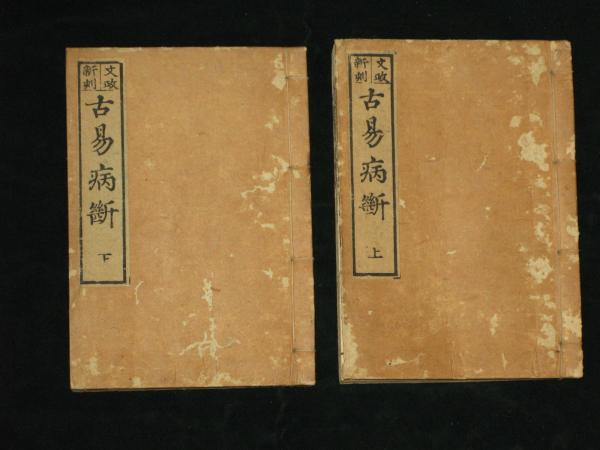 文政
新刻
古易病斷
下
文政
新刻
古易病斷
上